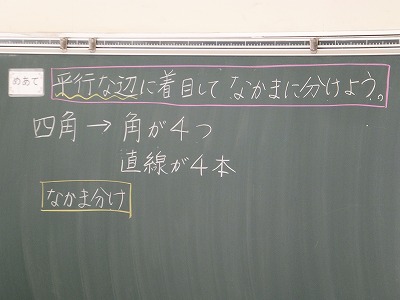 めあて
平行な辺に着目して なかまに分けよう。
四角→角が4つ
直線が4本
なかま分け